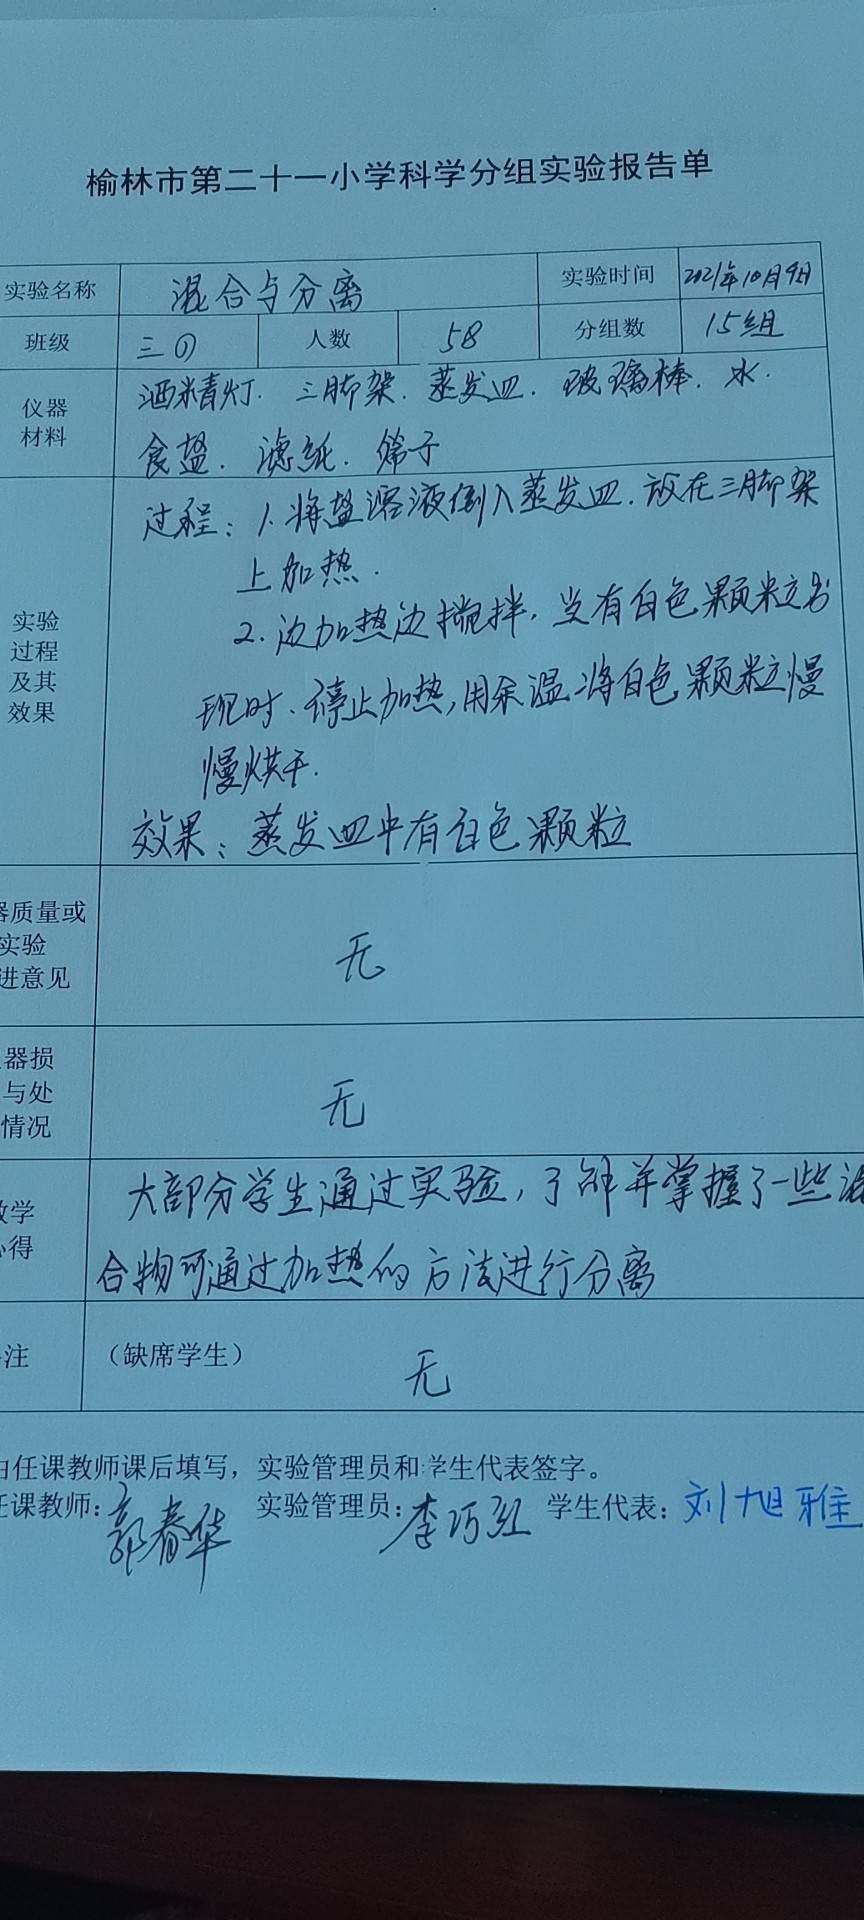 榆林市第二十一小学科学分组实验报告单
实验名称 混合与分离 实验时间 2021年10月9日
班级 三(1) 人数 58 分组数 15组
仪器
材料
酒精灯. 三脚架. 蒸发皿. 玻璃棒. 水.
食盐. 滤纸. 筛子
实验
过程
及其
效果
过程：1.将盐溶液倒入蒸发皿.放在三脚架
上加热.
2.边加热边搅拌，当有白色颗粒出
现时.停止加热，用余温将白色颗粒慢
慢烘干.
效果：蒸发皿中有白色颗粒
器质量或
实验
进意见
无
器损
与处
情况
无
教学
心得
大部分学生通过实验，了解并掌握了一些混
合物可通过加热的方法进行分离
注
（缺席学生）
无
由任课教师课后填写，实验管理员和学生代表签字。
任课教师：郭春华 实验管理员：李巧红 学生代表：刘旭雅